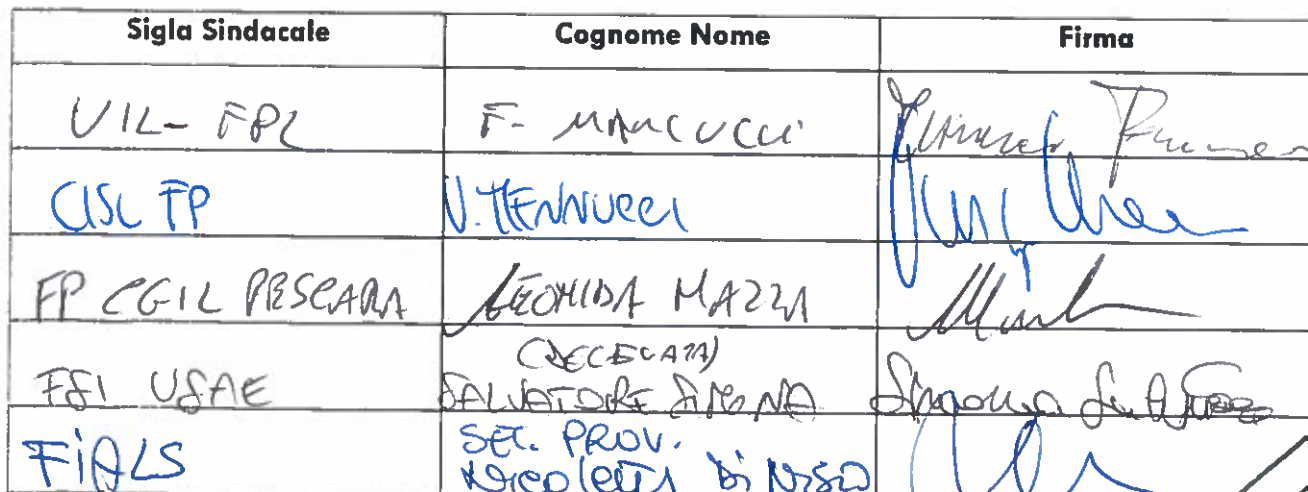 Sigla Sindacale Cognome Nome Firma
UIL- FPL F. MARCUCCI
CISL FP V. MENNUCCI
FP CGIL PESCARA LEONIDA MAZZA
(DELEGATA)
FSI USAE SALVATORE SIMONA Simona Salvatore
SEC. PROV.
FIALS NICOLETTA DI NISIO